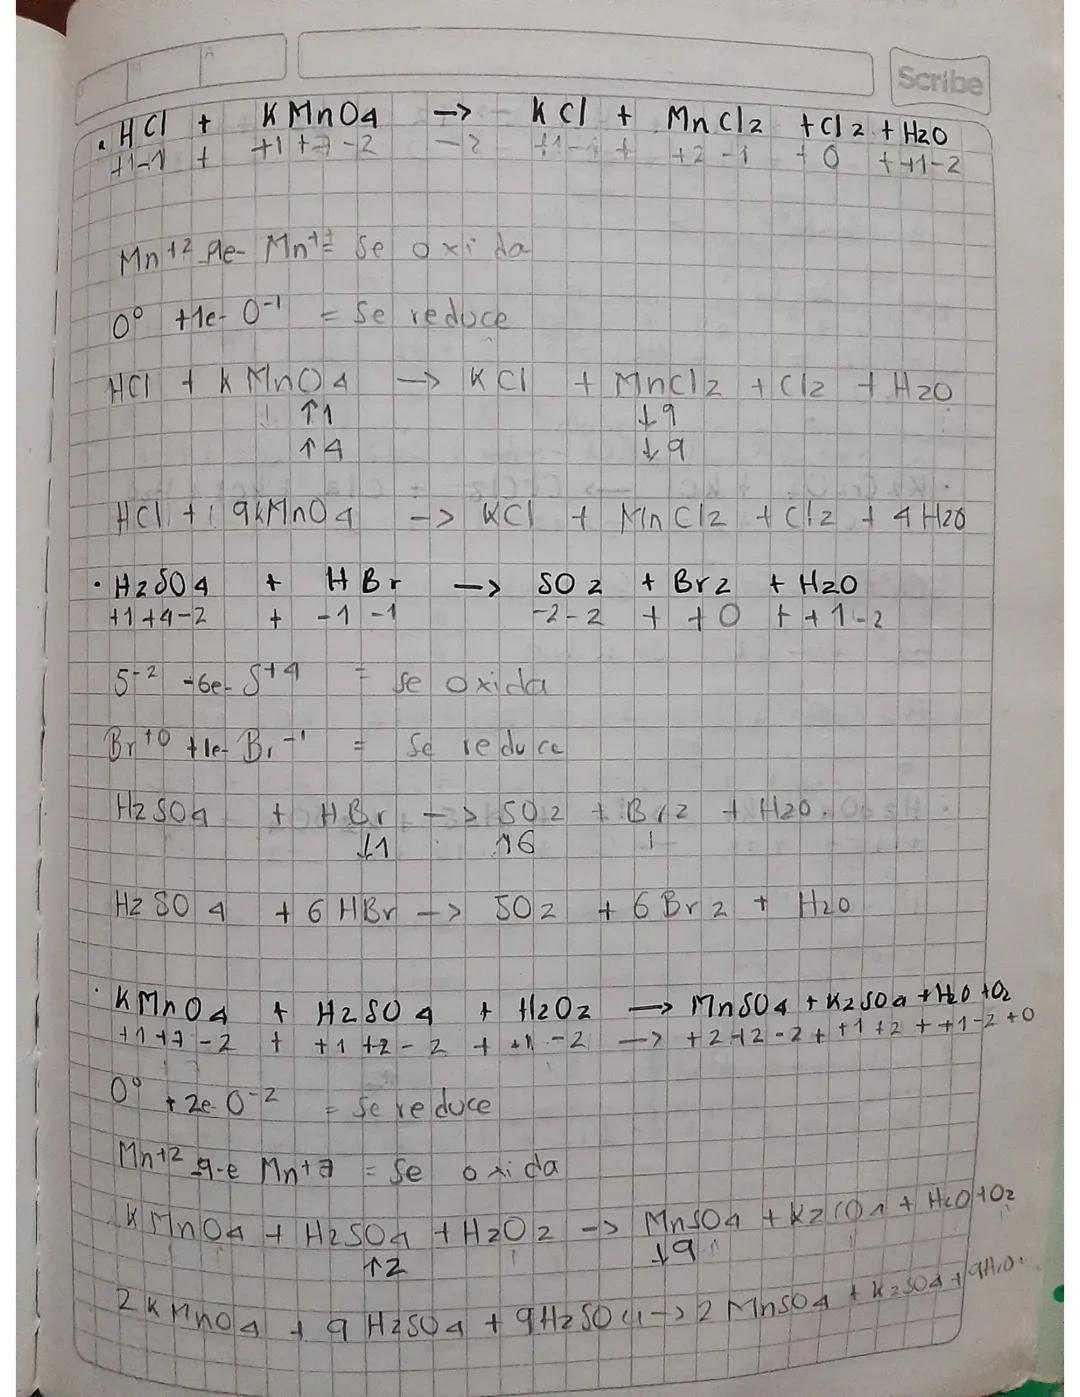 Scribe
• HCl + KMnO4 -> KCl + MnCl2 + Cl2 + H2O
+1-1 + +1+7-2 -2 +1-1 + +2-1 +0 ++1-2
Mn+2 9e- Mn+7= Se oxida
O° +1e- O-1 = Se reduce
HCl + KMnO4 -> KCl + MnCl2 + Cl2 + H2O
↑1 ↓9
↑4 ↓9
HCl + 9KMnO4 -> KCl + MnCl2 + Cl2 + 4H2O
• H2SO4 + HBr -> SO2 + Br2 + H2O
+1+4-2 + -1-1 -2-2 + +0 ++1-2
S-2 -6e- S+4 = se oxida
Br+0 +1e- Br-1 = Se reduce
H2SO4 + HBr -> SO2 + Br2 + H2O.
↓1 ↑6
H2SO4 + 6HBr -> SO2 + 6Br2 + H2O
• KMnO4 + H2SO4 + H2O2 -> MnSO4 + K2SO4 + H2O + O2
+1+7-2 + +1+2-2 + +1-2 -> +2+2-2 + +1+2 + +1-2+0
O° +2e- O-2 = Se reduce
Mn+2 9-e Mn+7 = Se oxida
KMnO4 + H2SO4 + H2O2 -> MnSO4 + K2SO4 + H2O + O2
↑2 ↓9
2KMnO4 + 9H2SO4 + 9H2SO4 -> 2MnSO4 + K2SO4 + 9H2O.